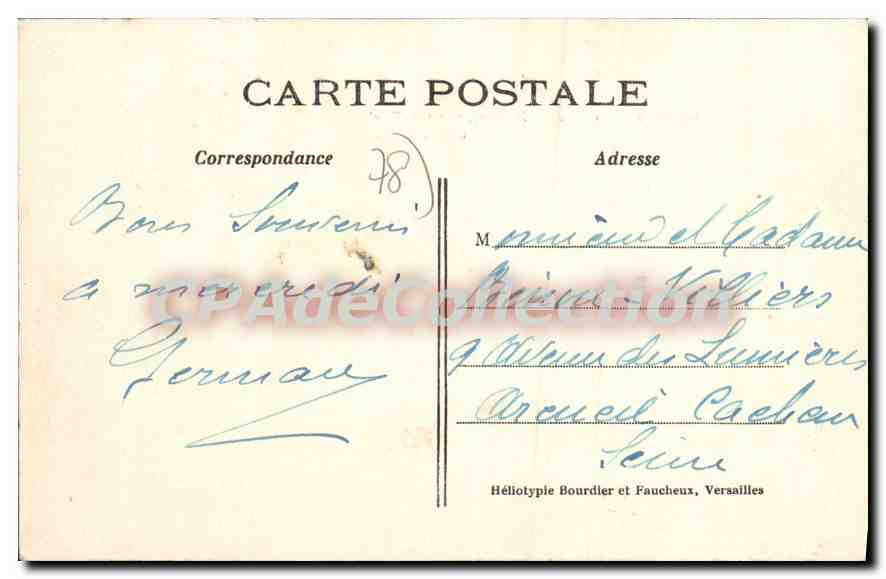 CARTE POSTALE
Correspondance
78)
Adresse
Bons Souvenir
a mercredi
Germain
Monsieur et Madame
Villiers
9 Avenue des Lumières
Arcueil Cachan
Seine
CPAdeCollection.com
Héliotypie Bourdier et Faucheux, Versailles